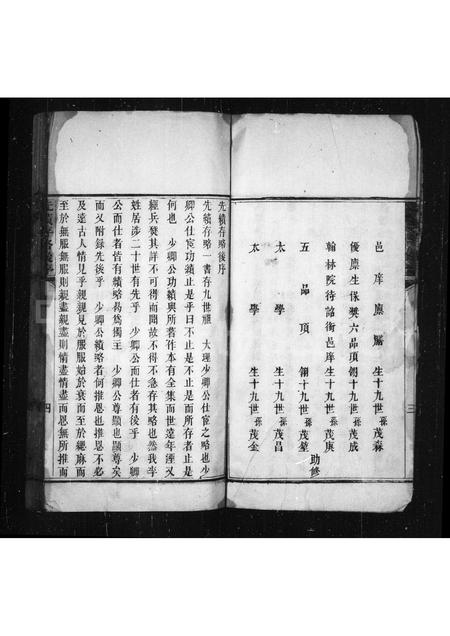 邑庠廩膳生十九世孫茂森
優廩生保獎六品頂翎十九世孫茂成
翰林院待詔銜邑庠生十九世孫茂庚
五品頂翎十九世孫茂堃
太學生十九世孫茂昌
太學生十九世孫茂金
助修
三
先績存略後序
先績存略一書存九世祖 大理少卿公仕宦之略也少
卿公仕宦績止是乎曰不止是而所存者止是
何也 少卿公功績與所著作本有全集而世遠年湮又
經兵燹其詳不可得而聞故不得不急存其略也然我半
姓居涉二十世有先乎 少卿公而仕者有後乎 少卿
公而仕者皆有績略曷爲獨王 少卿公尊顯也顯尊矣
而又附錄先後乎 少卿公績略者何推恩也推恩不必
及遠古人情見乎親親見於服服始於衰而至於緦麻而
至於無服無服則親盡親盡則情盡情盡而恩無所推而
四